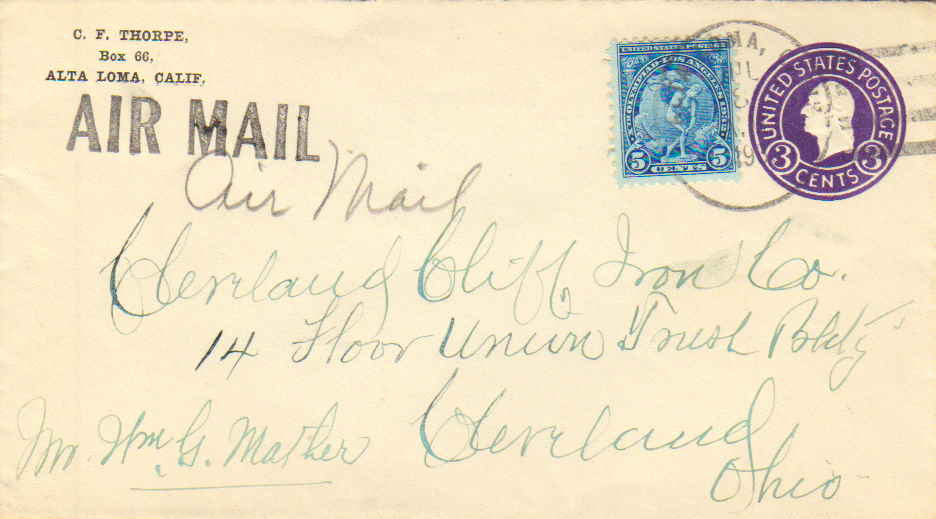 C. F. THORPE,
Box 66,
ALTA LOMA, CALIF.
AIR MAIL
Air Mail
UNITED STATES POSTAGE
Xth OLYMPIAD LOS ANGELES 1932
5 CENTS 5
UNITED STATES POSTAGE
3 CENTS 3
Cleveland Cliff Iron Co.
14 Floor Union Trust Bldg
Cleveland
Ohio
Mr. Wm. G. Mather